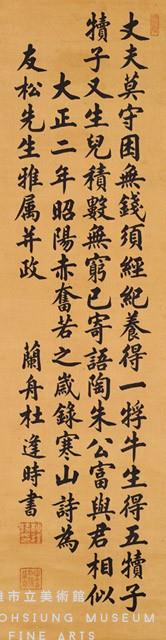 丈夫莫守困無錢須經紀養得一牸牛生得五犢子
犢子又生兒積數無窮已寄語陶朱公富與君相似
大正二年昭陽赤奮若之歲錄寒山詩為
友松先生雅屬并政 蘭舟杜逢時書
雄市立美術館
OHSIUNG MUSEUM
FINE ARTS